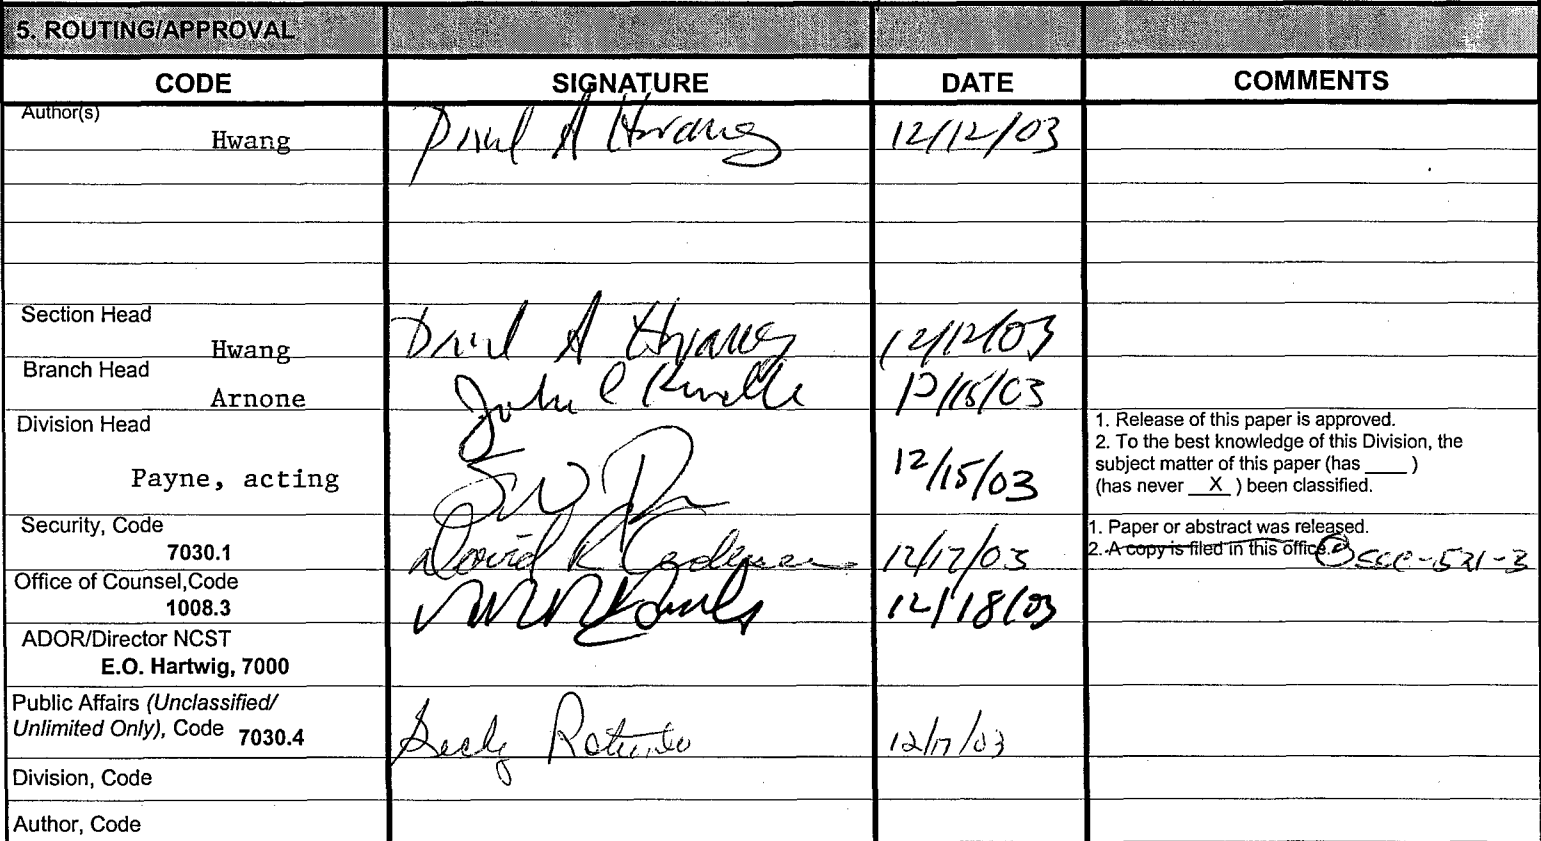 5. ROUTING/APPROVAL
CODE SIGNATURE DATE COMMENTS
Author(s)
Hwang Paul A Hwang 12/12/03
Section Head
Hwang Paul A Hwang 12/12/03
Branch Head
Arnone John C 12/15/03
Division Head
Payne, acting 12/15/03
1. Release of this paper is approved.
2. To the best knowledge of this Division, the
subject matter of this paper (has ____ )
(has never X ) been classified.
Security, Code
7030.1 David R 12/17/03
1. Paper or abstract was released.
2. A copy is filed in this office. SSC-521-3
Office of Counsel,Code
1008.3 12/18/03
ADOR/Director NCST
E.O. Hartwig, 7000
Public Affairs (Unclassified/
Unlimited Only), Code 7030.4 12/17/03
Division, Code
Author, Code